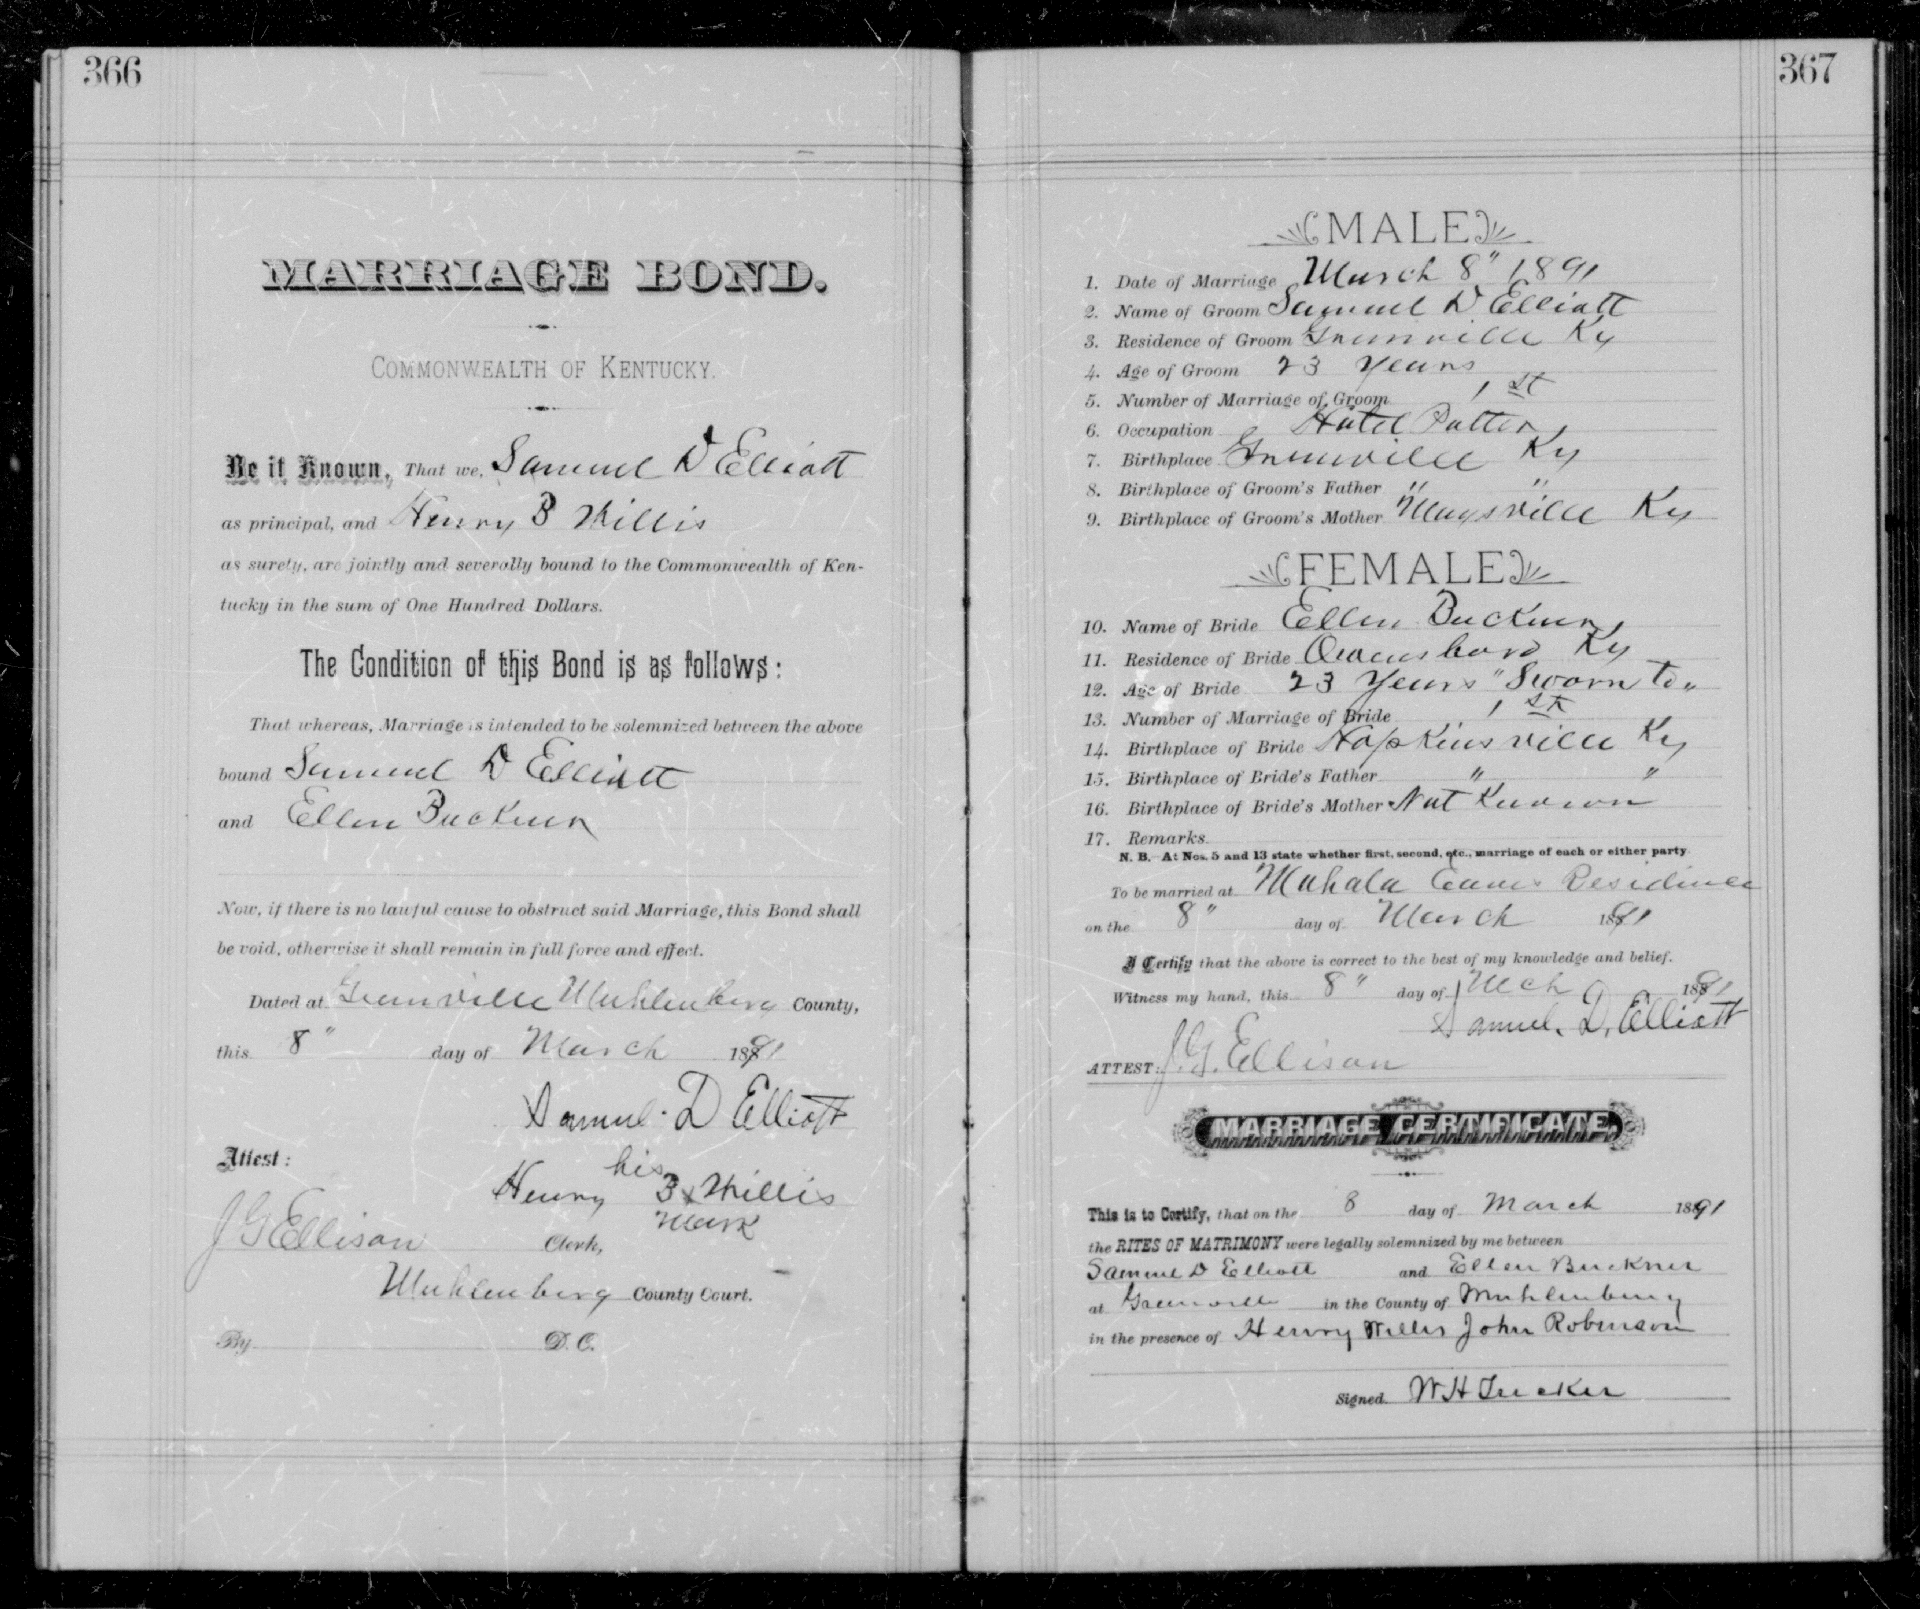 366
MARRIAGE BOND.
COMMONWEALTH OF KENTUCKY.
Be it Known, That we, Samuel D Elliott
as principal, and Henry B Willis
as surety, are jointly and severally bound to the Commonwealth of Ken-
tucky in the sum of One Hundred Dollars.
The Condition of this Bond is as follows:
That whereas, Marriage is intended to be solemnized between the above
bound Samuel D Elliott
and Ellen Buckner
Now, if there is no lawful cause to obstruct said Marriage, this Bond shall
be void, otherwise it shall remain in full force and effect.
Dated at Greenville Muhlenberg County,
this 8" day of March 1891
Samuel D Elliott
Attest:
his
Henry B x Willis
mark
J G Ellison Clerk,
Muhlenberg County Court.
By D. C.
367
MALE
1. Date of Marriage March 8" 1891
2. Name of Groom Samuel D Elliott
3. Residence of Groom Greenville Ky
4. Age of Groom 23 Years
5. Number of Marriage of Groom 1 st
6. Occupation Hotel Potter
7. Birthplace Greenville Ky
8. Birthplace of Groom's Father " "
9. Birthplace of Groom's Mother Maysville Ky
FEMALE
10. Name of Bride Ellen Buckner
11. Residence of Bride Owensboro Ky
12. Age of Bride 23 Years "Sworn to"
13. Number of Marriage of Bride 1 st
14. Birthplace of Bride Hopkinsville Ky
15. Birthplace of Bride's Father " "
16. Birthplace of Bride's Mother Not Known
17. Remarks
N. B. At Nos. 5 and 13 state whether first, second, etc., marriage of each or either party.
To be married at Mahala Residence
on the 8" day of March 1891
I Certify that the above is correct to the best of my knowledge and belief.
Witness my hand, this 8" day of Mch 1891
Samuel. D. Elliott
ATTEST: J. G. Ellison
MARRIAGE CERTIFICATE
This is to Certify, that on the 8 day of March 1891
the RITES OF MATRIMONY were legally solemnized by me between
Samuel D Elliott and Ellen Buckner
at Greenville in the County of Muhlenburg
in the presence of Henry Willis John Robinson
Signed W H Tucker